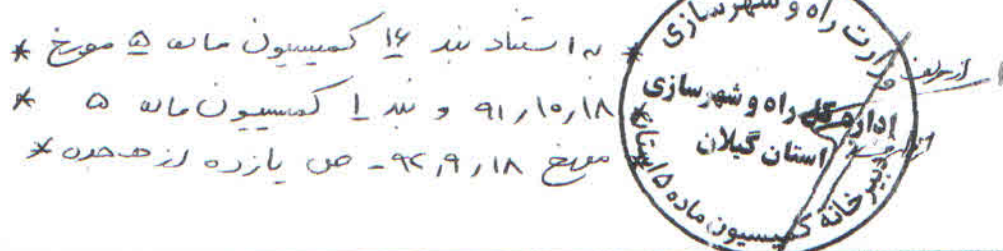 * به استناد بند ۱۶ کمیسیون ماده ۵ مورخ *
* ۹۱٫۱۰٫۱۸ و بند ۱ کمیسیون ماده ۵ *
* مورخ ۹۲٫۹٫۱۸ - ص یازده از هجده *
وزارت راه و شهرسازی
اداره کل راه و شهرسازی
استان گیلان
دبیرخانه کمیسیون ماده ۵ استان